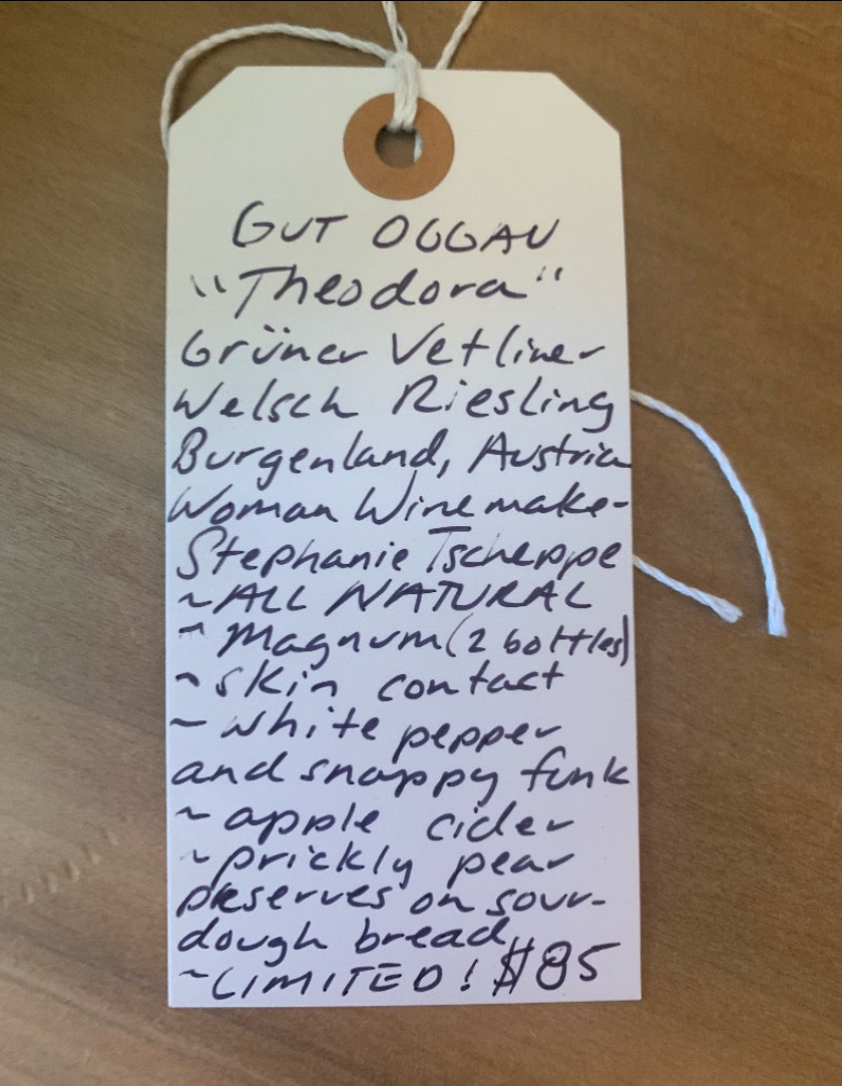 GUT OGGAU
"Theodora"
Grüner Vetliner
Welsch Riesling
Burgenland, Austria
Woman Winemaker
Stephanie Tscheppe
~ALL NATURAL
~ Magnum (2 bottles)
~skin contact
~ white pepper
and snappy funk
~ apple cider
~prickly pear
preserves on sour-
dough bread
~LIMITED! $85